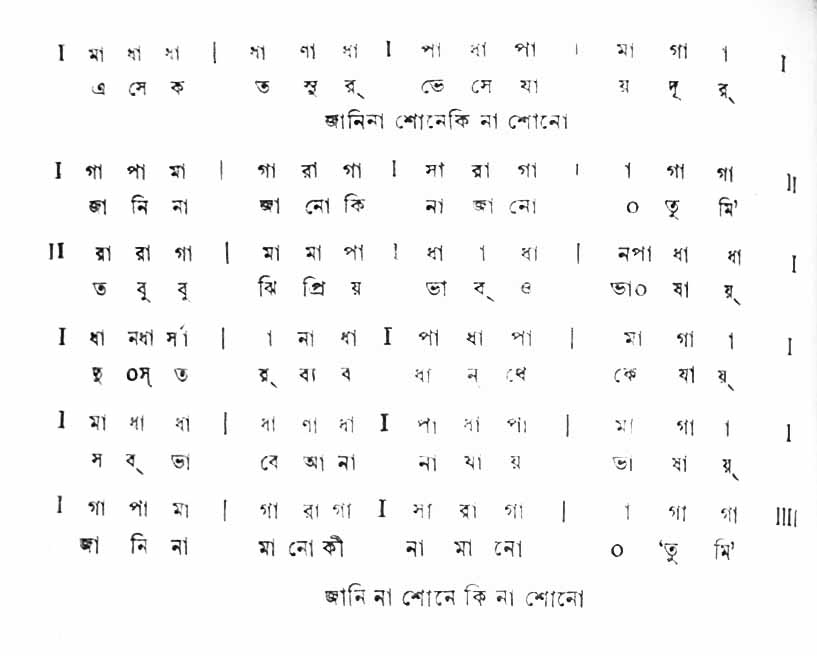 I মা ধা ধা | ধা ণা ধা I পা ধা পা । মা গা া I
এ সে ক ত সু র্ ভে সে যা য় দূ র্
জানিনা শোনেকি না শোনো
I গা পা মা | গা রা গা I সা রা গা । া গা গা II
জা নি না জা নো কি না জা নো ০ তু মি’
II রা রা গা | মা মা পা I ধা া ধা | নপা ধা ধা I
ত বু বু ঝি প্রি য় ভা ব্ ও ভা০ ষা য়্
I ধা নধা র্সা | া না ধা I পা ধা পা | মা গা া I
দু ০স্ ত র্ ব্য ব ধা ন্ থে কে যা য়্
I মা ধা ধা | ধা ণা ধা I পা ধা পা | মা গা া I
স ব্ ভা বে আ না না যা য় ভা ষা য়্
I গা পা মা | গা রা গা I সা রা গা | া গা গা IIII
জা নি না মা নো কী না মা নো ০ ‘তু মি’
জানি না শোনে কি না শোনো